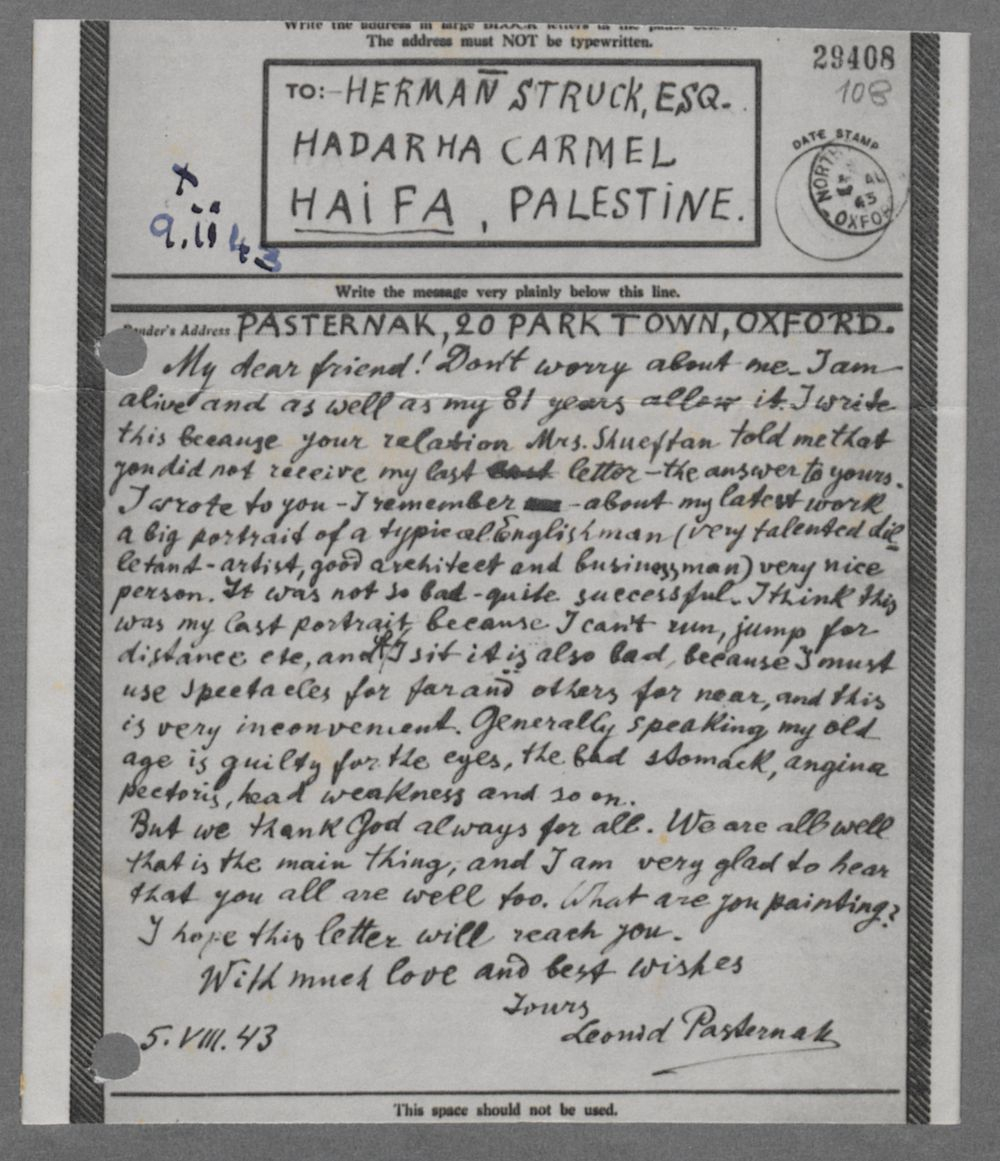 Write the address in large BLOCK letters in the panel below.
The address must NOT be typewritten.
29408
108
TO:- HERMAN STRUCK, ESQ.
HADAR HA CARMEL
HAIFA, PALESTINE.
DATE STAMP
NORTH
43
OXFO
x
9.ii 43
Write the message very plainly below this line.
Sender's Address PASTERNAK, 20 PARK TOWN, OXFORD.
My dear friend! Don't worry about me. I am
alive and as well as my 81 years allow it. I write
this because your relation Mrs. Shueftan told me that
you did not receive my last letter - the answer to yours.
I wrote to you - I remember - about my latest work
a big portrait of a typical Englishman (very talented dil
letant - artist, good architect and businessman) very nice
person. It was not so bad - quite successful. I think this
was my last portrait, because I can't run, jump for
distance etc, and if I sit it is also bad, because I must
use spectacles for far and others for near, and this
is very inconvenient. Generally speaking my old
age is guilty for the eyes, the bad stomack, angina
pectoris, head weakness and so on.
But we thank God always for all. We are all well
that is the main thing, and I am very glad to hear
that you all are well too. What are you painting?
I hope this letter will reach you.
With much love and best wishes
Yours
Leonid Pasternak
5. VIII. 43
This space should not be used.